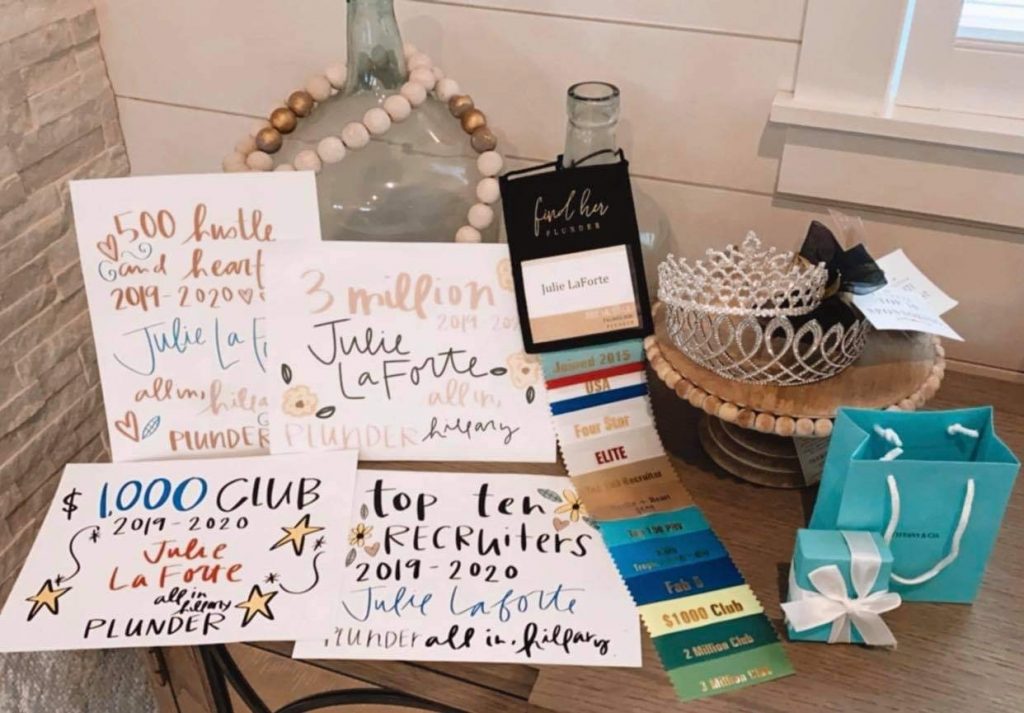 500 hustle
and heart
2019-2020
Julie La F
all in,
PLUNDER
3 million
2019-20
Julie
LaForte
all in,
PLUNDER hillary
$1,000 CLUB
2019-2020
Julie
LaForte
all in
hillary
PLUNDER
top ten
RECRuiters
2019-2020
Julie Laforte
PLUNDER all in, hillary
find her
PLUNDER
Julie LaForte
PLUNDER
Joined 2015
USA
Four Star
ELITE
Recruiter
Top 100 PRV
Fab 5
$1000 Club
2 Million Club
3 Million Club
TIFFANY & CO.